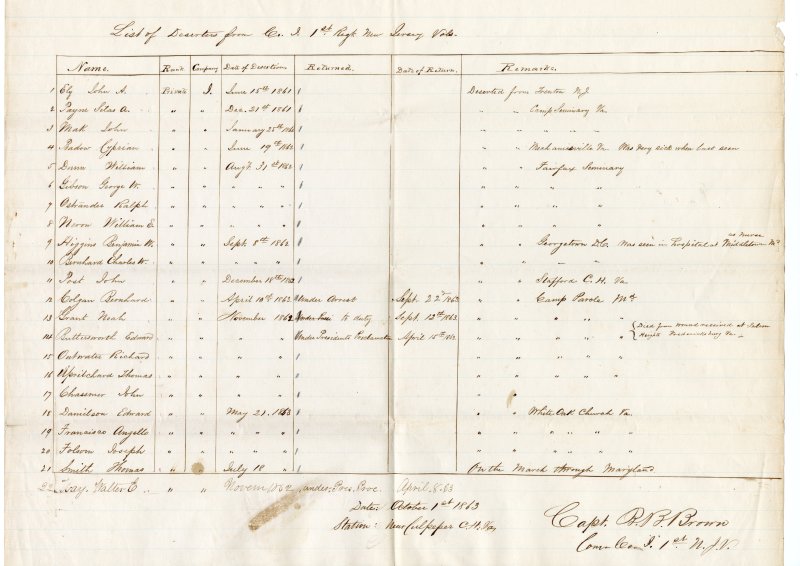 List of Deserters from Co. I. 1st Regt New Jersey Vols.
Name. Rank Company Date of Desertion Returned. Date of Return. Remarks.
1 Ely John A. Private I. June 15th 1861 Deserted from Trenton N.J.
2 Payne Silas A. " " Dec. 21st 1861 " " Camp Seminary Va
3 Mak John " " January 25th 1862 " " " " "
4 Rador Cyprian " " June 19th 1862 " " Mechanicsville Va. Was very sick when last seen
5 Dunn William " " Augt. 31st 1862 " " Fairfax Seminary
6 Gibson George W. " " " " " " " " "
7 Ostrander Ralph " " " " " " " " "
8 Neron William E. " " " " " " " " "
as Nurse
9 Higgins Benjamin W. " " Sept. 8th 1862 " " Georgetown D.C. Was seen in hospital at Middletown Md
10 Bernhard Charles W. " " " " " " " " "
11 Post John " " December 18th 1862 " " Stafford C. H. Va
12 Colgan Bernhard " " April 10th 1863 Under Arrest Sept. 22d 1863 " " Camp Parole Md
13 Grant Noah " " November 1862 to duty Sept. 12th 1863 " " " " "
14 Buttersworth Edward " " " " Under Presidents Proclamation April 15th 1863 " " Died from wound received at Salem Heights Fredericksburg Va.
15 Outwater Richard " " " " " " " " "
16 Upritchard Thomas " " " " " " " " "
17 Chassmer John " " " " " "
18 Danielson Edward " " May 21. 1863 " " White Oak Church Va.
19 Francisco Angello " " " " " " " " " " "
20 Folson Joseph " " " " " " " " " " "
21 Smith Thomas " " July 18 " On the March through Maryland
22 Walter E. " " Novem 1862 under Pres. Proc. April 8. 63
Date: October 1st 1863
Station: Near Culpeper C. H. Va
Capt. R. B. Brown
Com'g Com. I. 1st N.J.V.